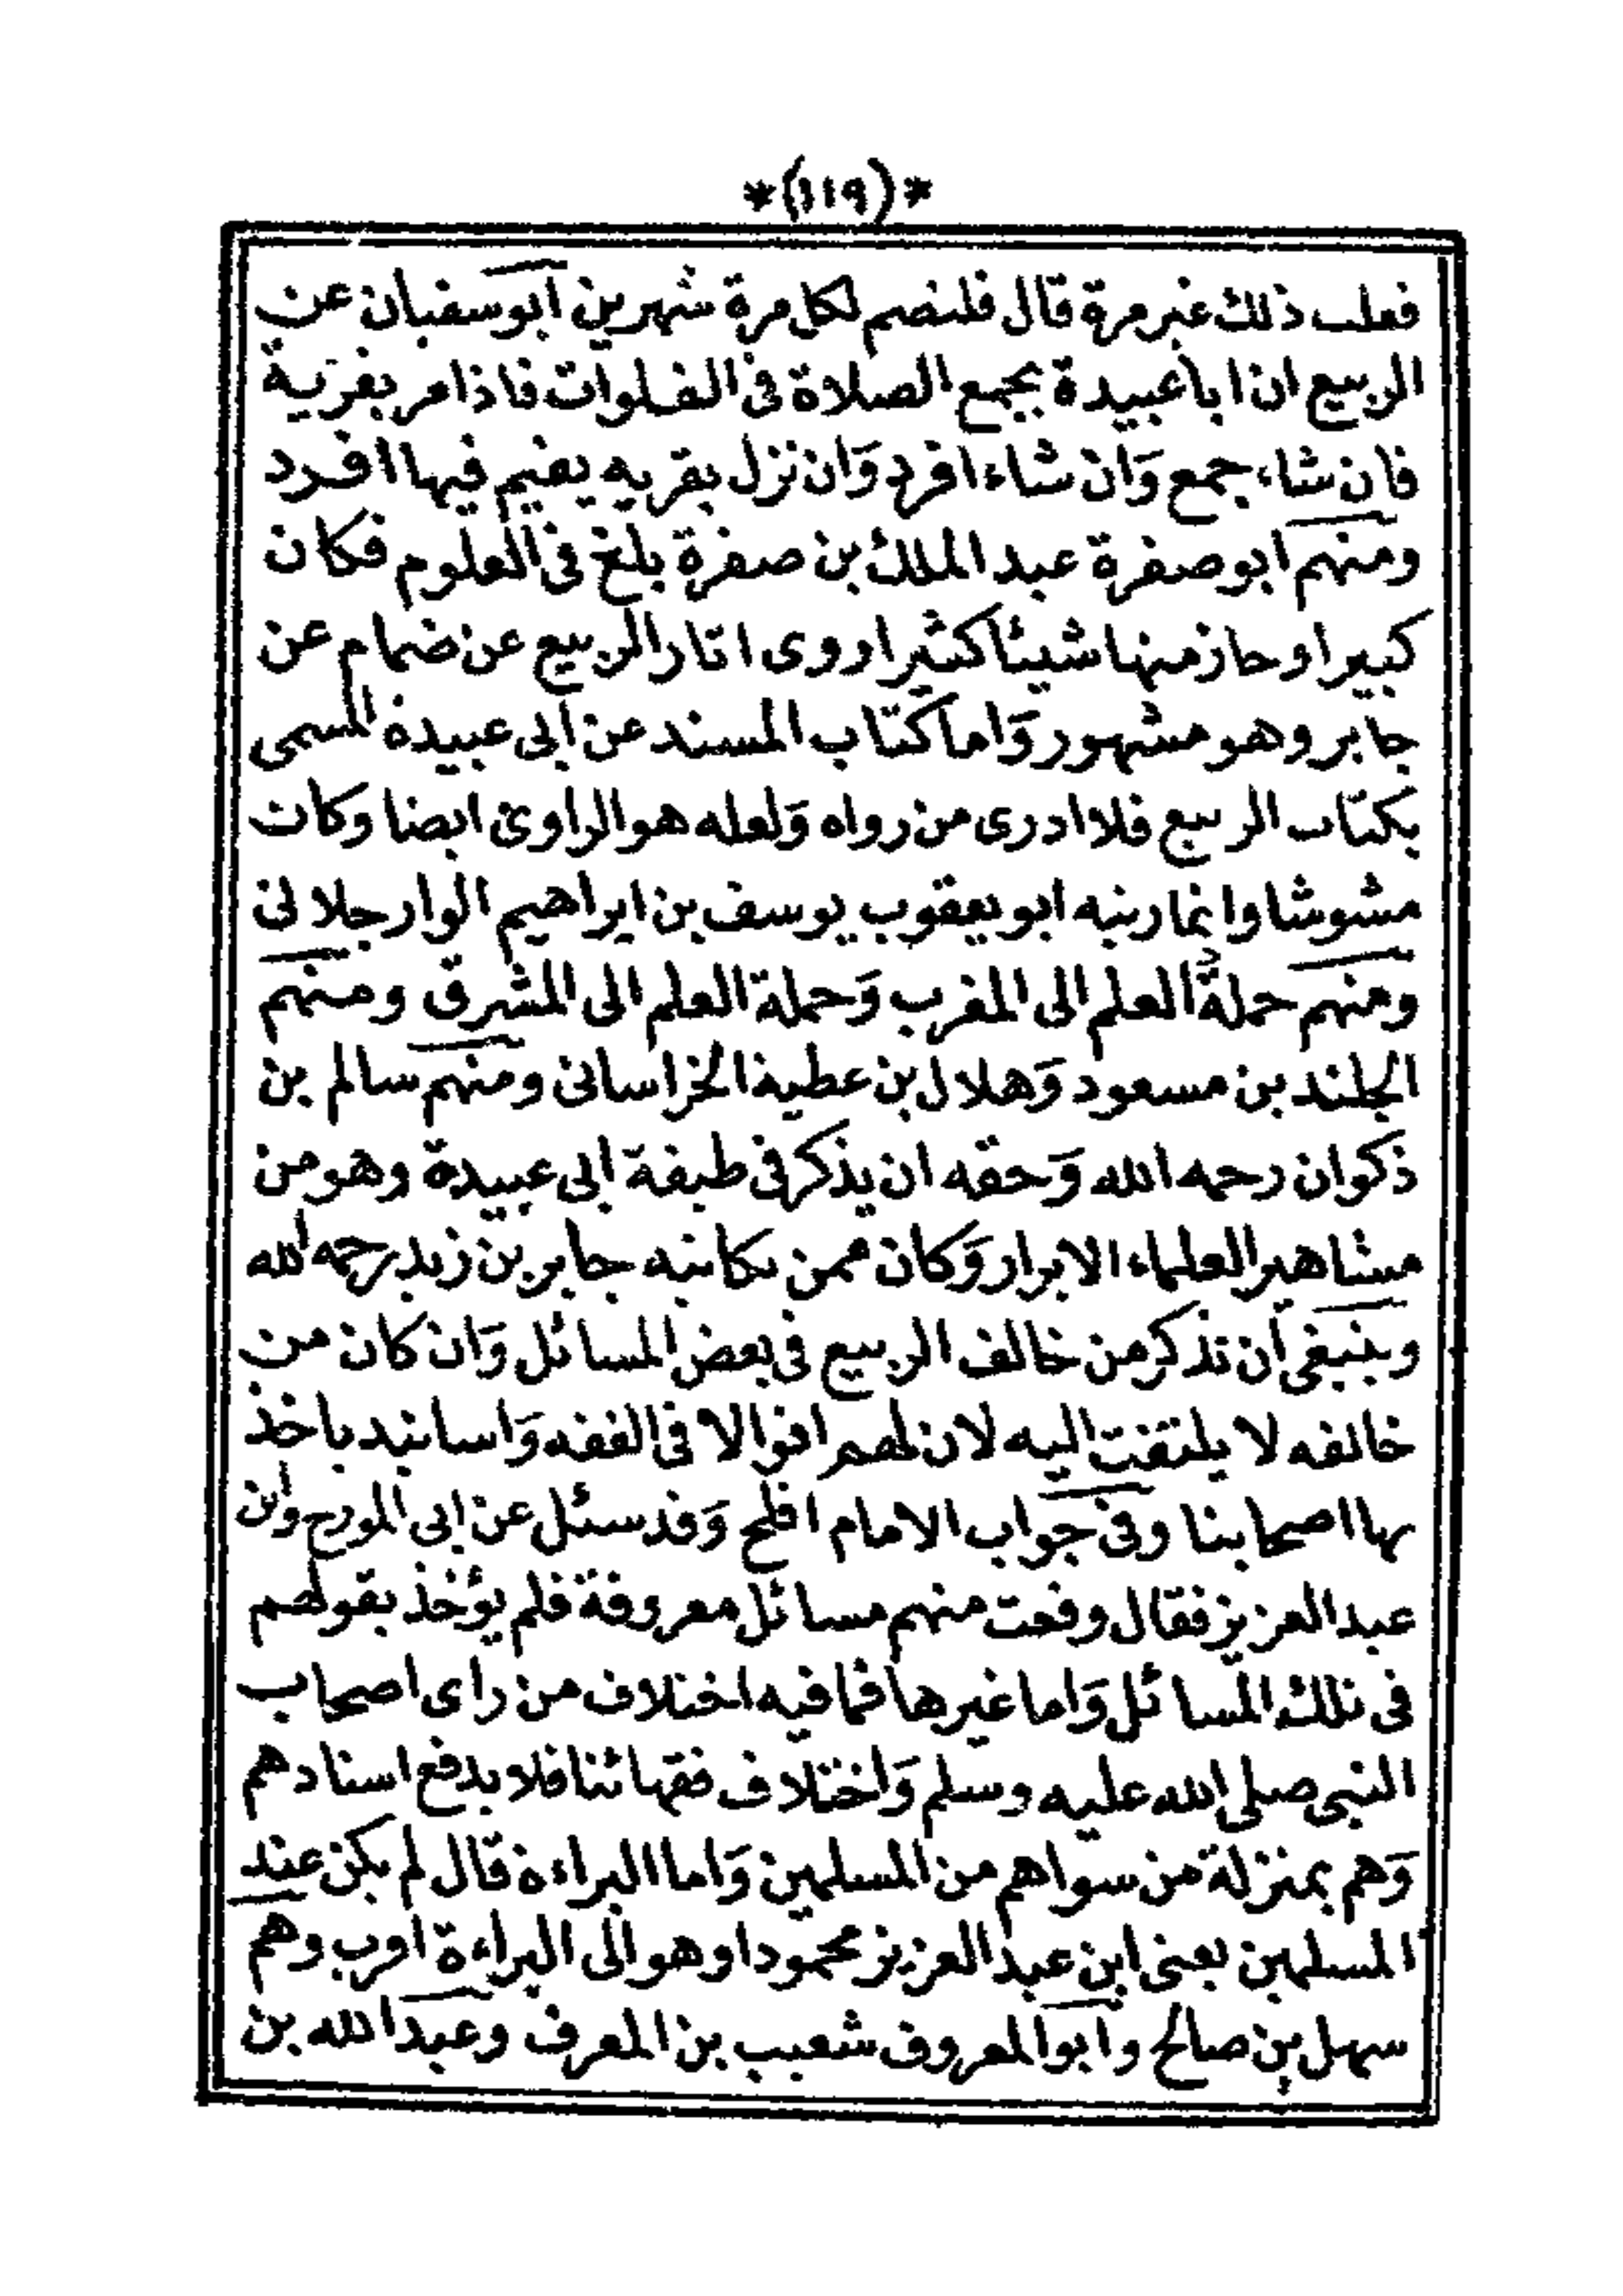 *(١١٩)*
فعلت ذلك غير مرة قال فلتصم لكل مرة شهرين ابو سفيان عن
الربيع ان ابا عبيدة يجمع الصلاة فى الفلوات فاذا مر بقرية
فان شاء جمع وَان شاء افرد وَان نزل بقريه يقيم فيها افرد
ومنهم ابو صفرة عبد الملك بن صفرة بلغ فى العلوم فكان
كبيرا وحاز منها شيئا كثيرا روى اثار الربيع عن ضمام عن
جابر وهو مشهور وَاما كتاب المسند عن ابى عبيدة المسمى
بكتاب الربيع فلا ادرى من رواه وَلعله هو الراوى ايضا وكان
مشوشا وانما رتبه ابو يعقوب يوسف بن ابراهيم الوارجلانى
ومنهم حملة العلم الى المغرب وَحملة العلم الى المشرق ومنهم
الجلند بن مسعود وَهلال بن عطية الخراسانى ومنهم سالم بن
ذكوان رحمه الله وَحقه ان يذكر فى طبقة ابى عبيدة وهو من
مشاهير العلماء الابرار وَكان ممن يكاتبه جابر بن زيد رحمه الله
وينبغى ان نذكر من خالف الربيع فى بعض المسائل وَان كان من
خالفه لا يلتفت اليه لان لهم اقوالا فى الفقه وَاسانيد ياخذ
بها اصحابنا وفى جواب الامام افلح وَقد سئل عن ابى المورج وابن
عبد العزيز فقال وقعت منهم مسائل معروفة فلم يؤخذ بقولهم
فى تلك المسائل وَاما غيرها فما فيه اختلاف من راى اصحاب
النبى صلى الله عليه وسلم وَاختلاف فقهائنا فلا يدفع اسنادهم
وَهم بمنزلة من سواهم من المسلمين وَاما البراءة قال لم يكن عند
المسلمين يعنى ابن عبد العزيز محمودا وهو الى البراءة اقرب وهم
سهل بن صالح وابو المعروف شعيب بن المعرف وعبد الله بن